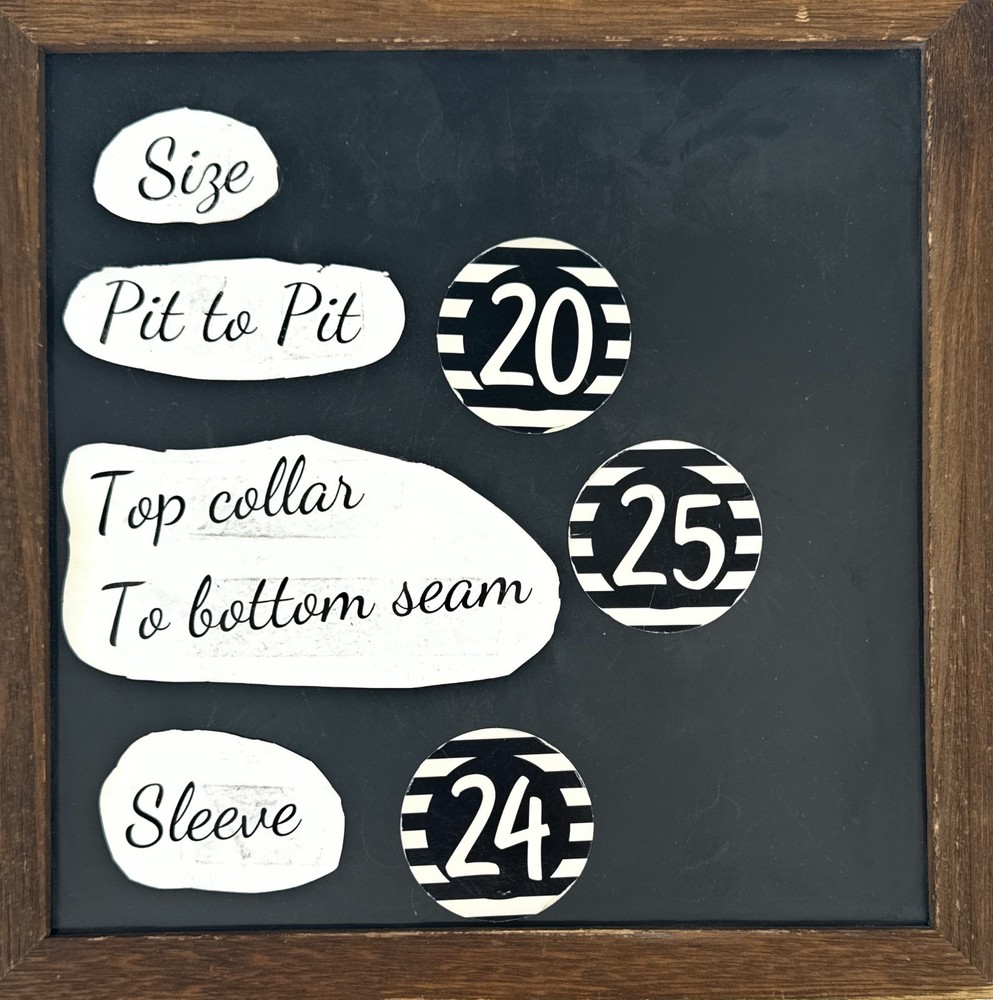 Size
Pit to Pit 20
Top collar
To bottom seam 25
Sleeve 24